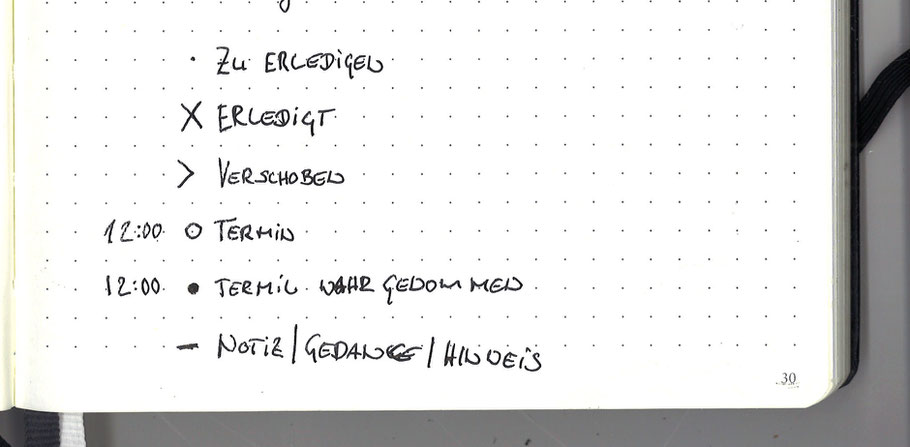 · ZU ERLEDIGEN
X ERLEDIGT
> VERSCHOBEN
12:00 O TERMIN
12:00 ● TERMIN WAHRGENOMMEN
– NOTIZ/GEDANKE/HINWEIS
30